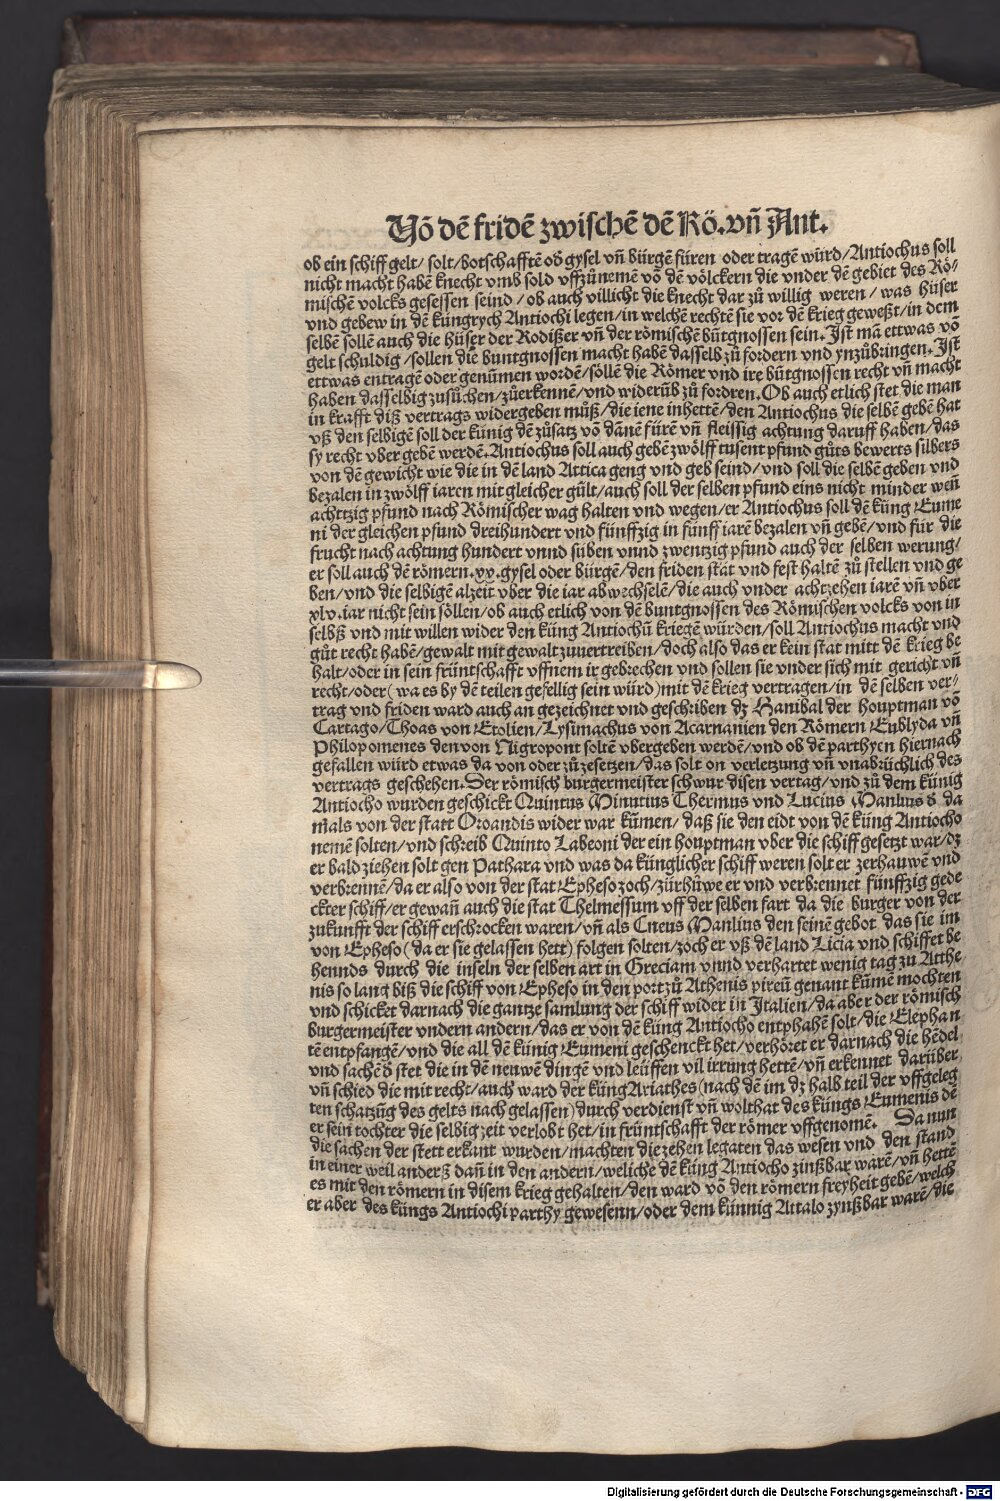 Võ dẽ fridẽ zwischẽ dẽ Rö. vñ Ant.
ob ein schiff gelt/ solt/ botschafftẽ od gysel vñ bürgẽ füren oder tragẽ würd/Antiochus soll
nicht macht habẽ knecht vmb sold vffzůnemẽ võ dẽ völckern die vnder dẽ gebiet des Rö/
mischẽ volcks gesessen seind/ob auch villicht die knecht dar zů willig weren/ was hüser
vnd gebew in dẽ küngrych Antiochi legen/in welchẽ rechtẽ sie vor dẽ krieg geweßt/in dem
selbẽ sollẽ auch die hüser der Rodißer vñ der römischẽ bũtgnossen sein. Ist mã ettwas võ
gelt schuldig/sollen die buntgnossen macht habẽ dasselb zů fordern vnd ynzůbringen. Ist
ettwas entragẽ oder genũmen wordẽ/sollẽ die Römer vnd ire bũtgnossen recht vñ macht
haben dasselbig zusůchen/zůerkennẽ/vnd widerũb zů fordren. Ob auch etlich stet die man
in krafft diß vertrags widergeben můß/die iene inhettẽ/den Antiochus die selbẽ gebẽ hat
vß den selbigẽ soll der künig dẽ zůsatz võ dãnẽ fürẽ vñ fleissig achtung daruff haben/das
sy recht vber gebẽ werdẽ. Antiochus soll auch gebẽ zwölff tusent pfund gůts bewerts silbers
von dẽ gewicht wie die in dẽ land Attica geng vnd geb seind/vnd soll die selbẽ geben vnd
bezalen in zwölff iaren mit gleicher gült/auch soll der selben pfund eins nicht minder weñ
achttzig pfund nach Römischer wag halten vnd wegen/er Antiochus soll dẽ küng Eume
ni der gleichen pfund dreihundert vnd fünffzig in fünff iarẽ bezalen vñ gebẽ/vnd für die
frucht nach achtung hundert vnnd süben vnnd zwentzig pfund auch der selben werung/
er soll auch dẽ römern.xx.gysel oder bürgẽ/den friden stät vnd fest haltẽ zů stellen vnd ge
ben/vnd die selbigẽ alzeit vber die iar abwechselẽ/die auch vnder achtzehen iarẽ vñ vber
xlv.iar nicht sein söllen/ob auch etlich von dẽ buntgnossen des Römischen volcks von in
selbß vnd mit willen wider den küng Antiochũ kriegẽ würden/soll Antiochus macht vnd
gůt recht habẽ/gewalt mit gewalt zuuertreiben/doch also das er kein stat mitt dẽ krieg be
halt/oder in sein früntschafft vffnem ir gebrechen vnd sollen sie vnder sich mit gericht vñ
recht/oder(wa es by dẽ teilen gefellig sein würd)mit dẽ krieg vertragen/in dẽ selben ver/
trag vnd friden ward auch an gezeichnet vnd geschriben dz Hanibal der houptman võ
Cartago/Thoas von Etolien/Lysimachus von Acarnanien den Römern Eublyda vñ
Philopomenes den von Nigropont soltẽ vbergeben werdẽ/vnd ob dẽ parthyen hiernach
gefallen würd etwas da von oder zůzesetzen/das solt on verletzung vñ vnabrüchlich des
vertrags geschehen. Der römisch burgermeister schwur disen vertag/vnd zů dem künig
Antiocho wurden geschickt Quintus Minutius Thermus vnd Lucius Manlius d da
mals von der statt Oroandis wider war kũmen/daß sie den eidt von dẽ küng Antiocho
nemẽ solten/vnd schreib Quinto Labeoni der ein houptman vber die schiff gesetzt war/dz
er bald ziehen solt gen Pathara vnd was da künglicher schiff weren solt er zerhauwẽ vnd
verbrennẽ/da er also von der stat Epheso zoch/zürhůwe er vnd verbrennet fünffzig gede
ckter schiff/er gewañ auch die stat Thelmessum vff der selben fart da die burger von der
zukunfft der schiff erschrocken waren/vñ als Cneus Manlius den seinẽ gebot das sie im
von Epheso(da er sie gelassen hett)folgen solten/zoch er vß dẽ land Licia vnd schiffet be
hennds durch die inseln der selben art in Greciam vnnd verhartet wenig tag zu Atthe
nis so lang biß die schiff von Epheso in den port zů Athenis pireũ genant kũmẽ mochten
vnd schicket darnach die gantze samlung der schiff wider in Italien/da aber der römisch
burgermeister vndern andern/das er von dẽ küng Antiocho entphahẽ solt/die Elephan
tẽ entpfangẽ/vnd die all dẽ künig Eumeni geschenckt het/verhöret er darnach die hẽdel
vnd sachẽ d stet die in dẽ neuwẽ dingẽ vnd leüffen vil irrung hettẽ/vñ erkennet darüber
vñ schied die mit recht/auch ward der küng Ariathes(nach dẽ im dz halb teil der vffgeleg
ten schatzũg des gelts nach gelassen)durch verdienst vñ wolthat des küngs Eumenis dẽ
er sein tochter die selbig zeit verlobt het/in früntschafft der römer vffgenomẽ. Da nun
die sachen der stett erkant wurden/machten die zehen legaten das wesen vnd den stand
in einer weil anderß dañ in den andern/weliche dẽ küng Antiocho zinßbar warẽ/vñ hettẽ
es mit den römern in disem krieg gehalten/den ward võ den römern freyheit gebẽ/welch
er aber des küngs Antiochi parthy gewesenn/oder dem künnig Attalo zynßbar warẽ/die
Digitalisierung gefördert durch die Deutsche Forschungsgemeinschaft - DFG